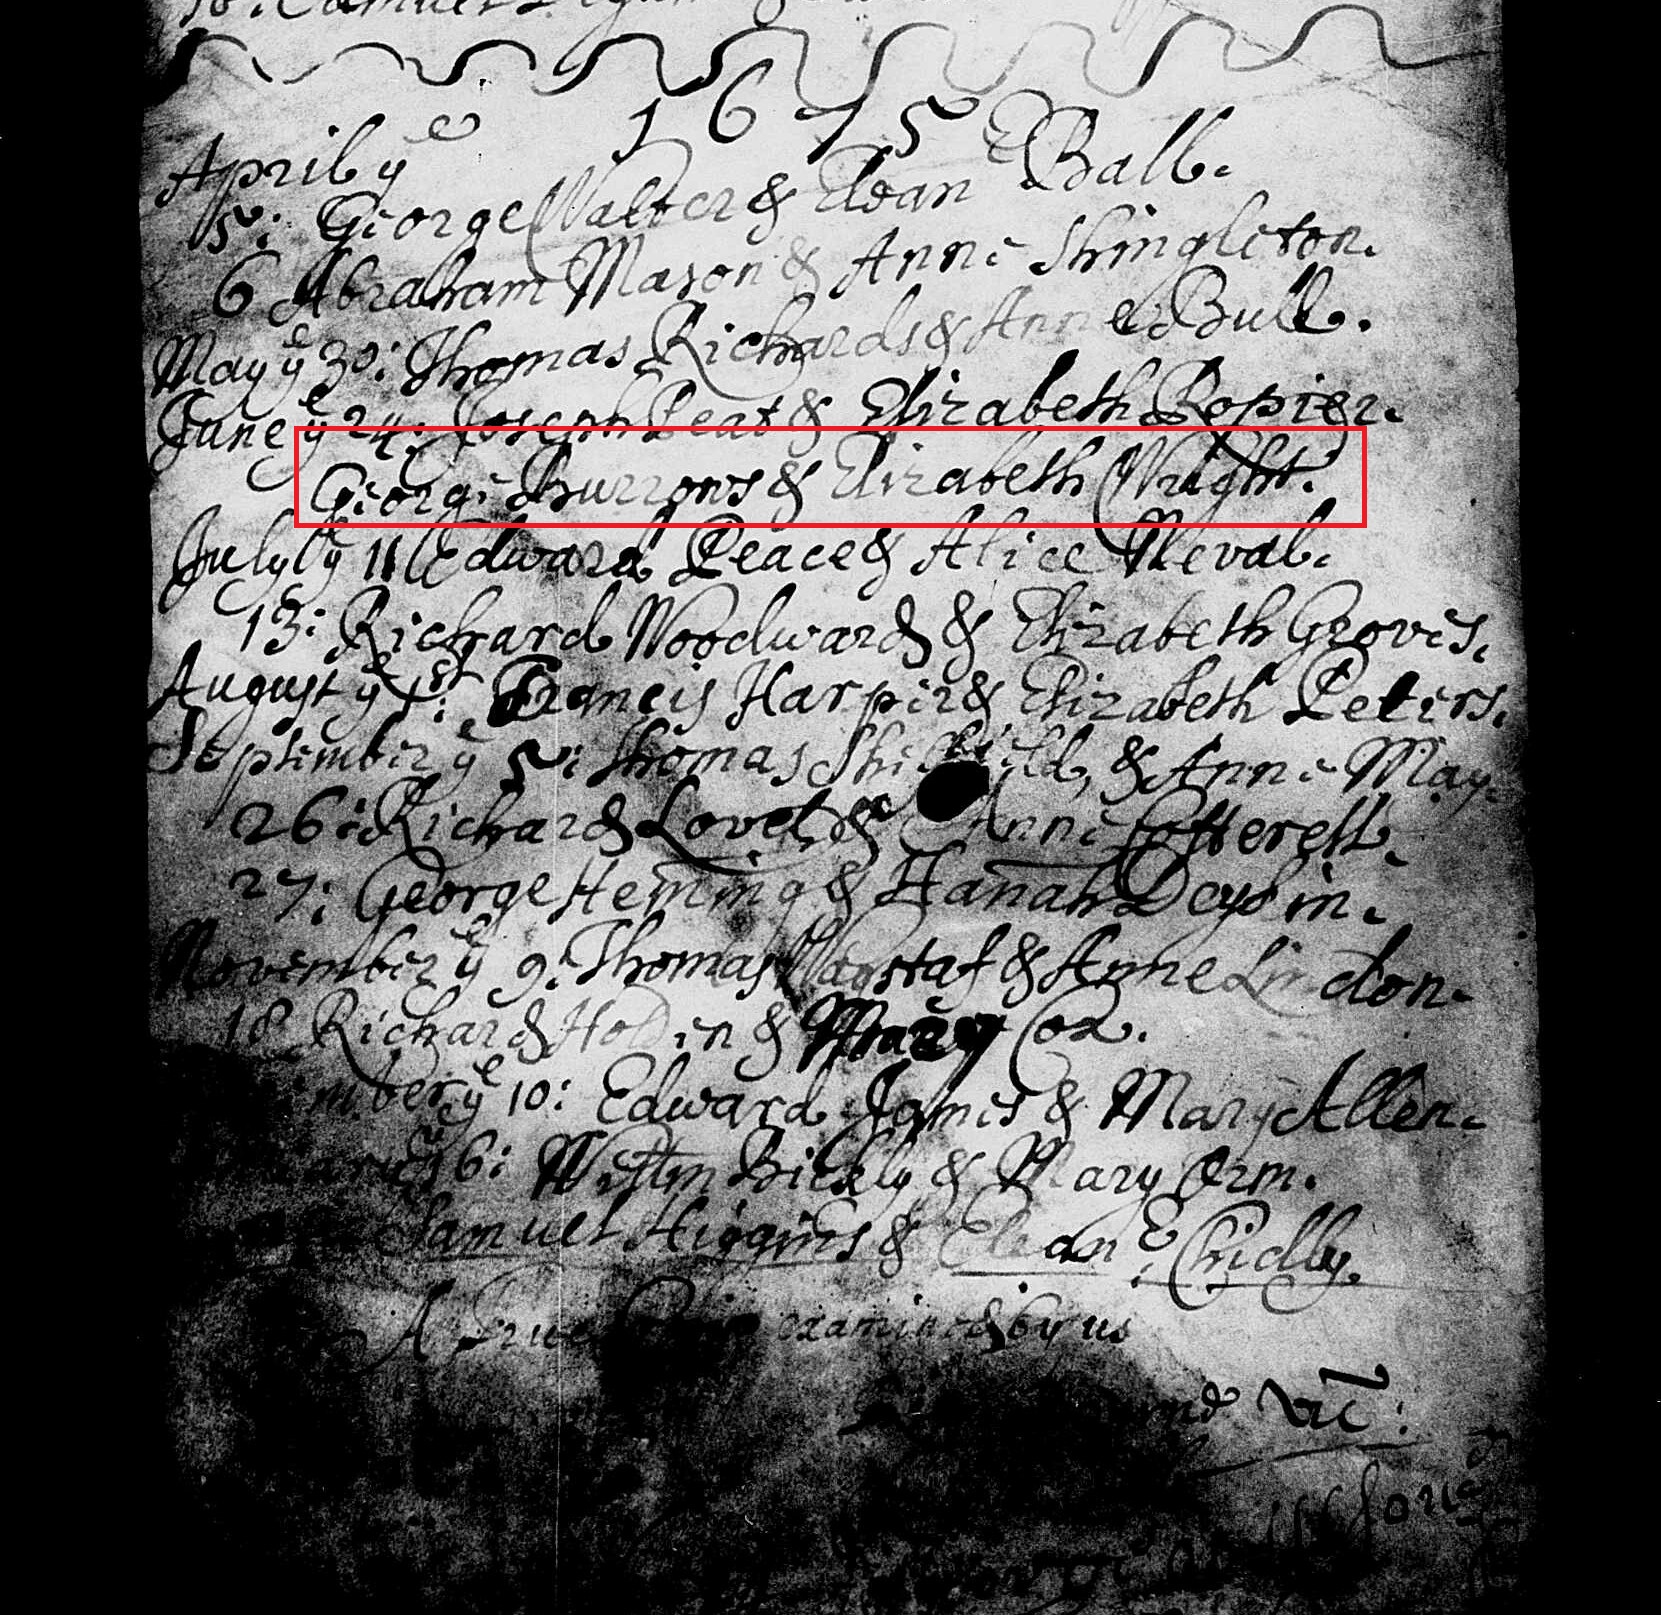 1675
April ye
5: George Walter & Elean Ball.
6 Abraham Mason & Anne Shingleton.
May ye 30: Thomas Richards & Anne Bull.
June ye 24: Joseph Peat & Elizabeth Ropier.
George Burrows & Elizabeth Wright.
July ye 11 Edward Peace & Alice Neval.
13: Richard Woodward & Elizabeth Groves.
August ye 1st: Francis Harper & Elizabeth Peters.
September ye 5: Thomas & Anne May.
26: Richard Lovet & Anne Cotterell.
27: George Heming & Hanah
November ye 9: Thomas Wagstaf & Anne Lindon.
18 Richard Holden & Mary Cox.
mber ye 10: Edward James & Mary Allen.
6: Bickly & Mary Orm.
Samuel Higgins & Elean: Chidly.
A True examined by us
Vic: